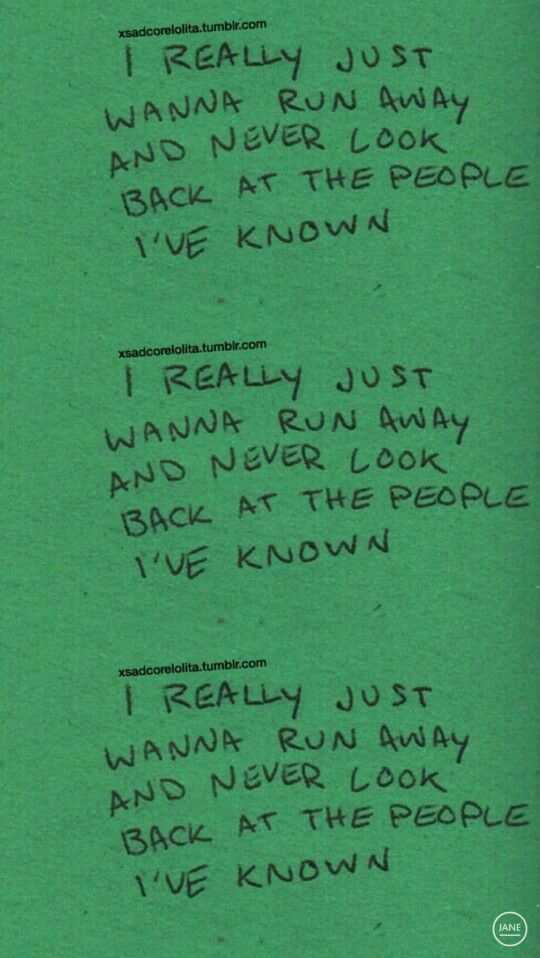 xsadcorelolita.tumblr.com
I REALLY JUST
WANNA RUN AWAY
AND NEVER LOOK
BACK AT THE PEOPLE
I'VE KNOWN
xsadcorelolita.tumblr.com
I REALLY JUST
WANNA RUN AWAY
AND NEVER LOOK
BACK AT THE PEOPLE
I'VE KNOWN
xsadcorelolita.tumblr.com
I REALLY JUST
WANNA RUN AWAY
AND NEVER LOOK
BACK AT THE PEOPLE
I'VE KNOWN
JANE